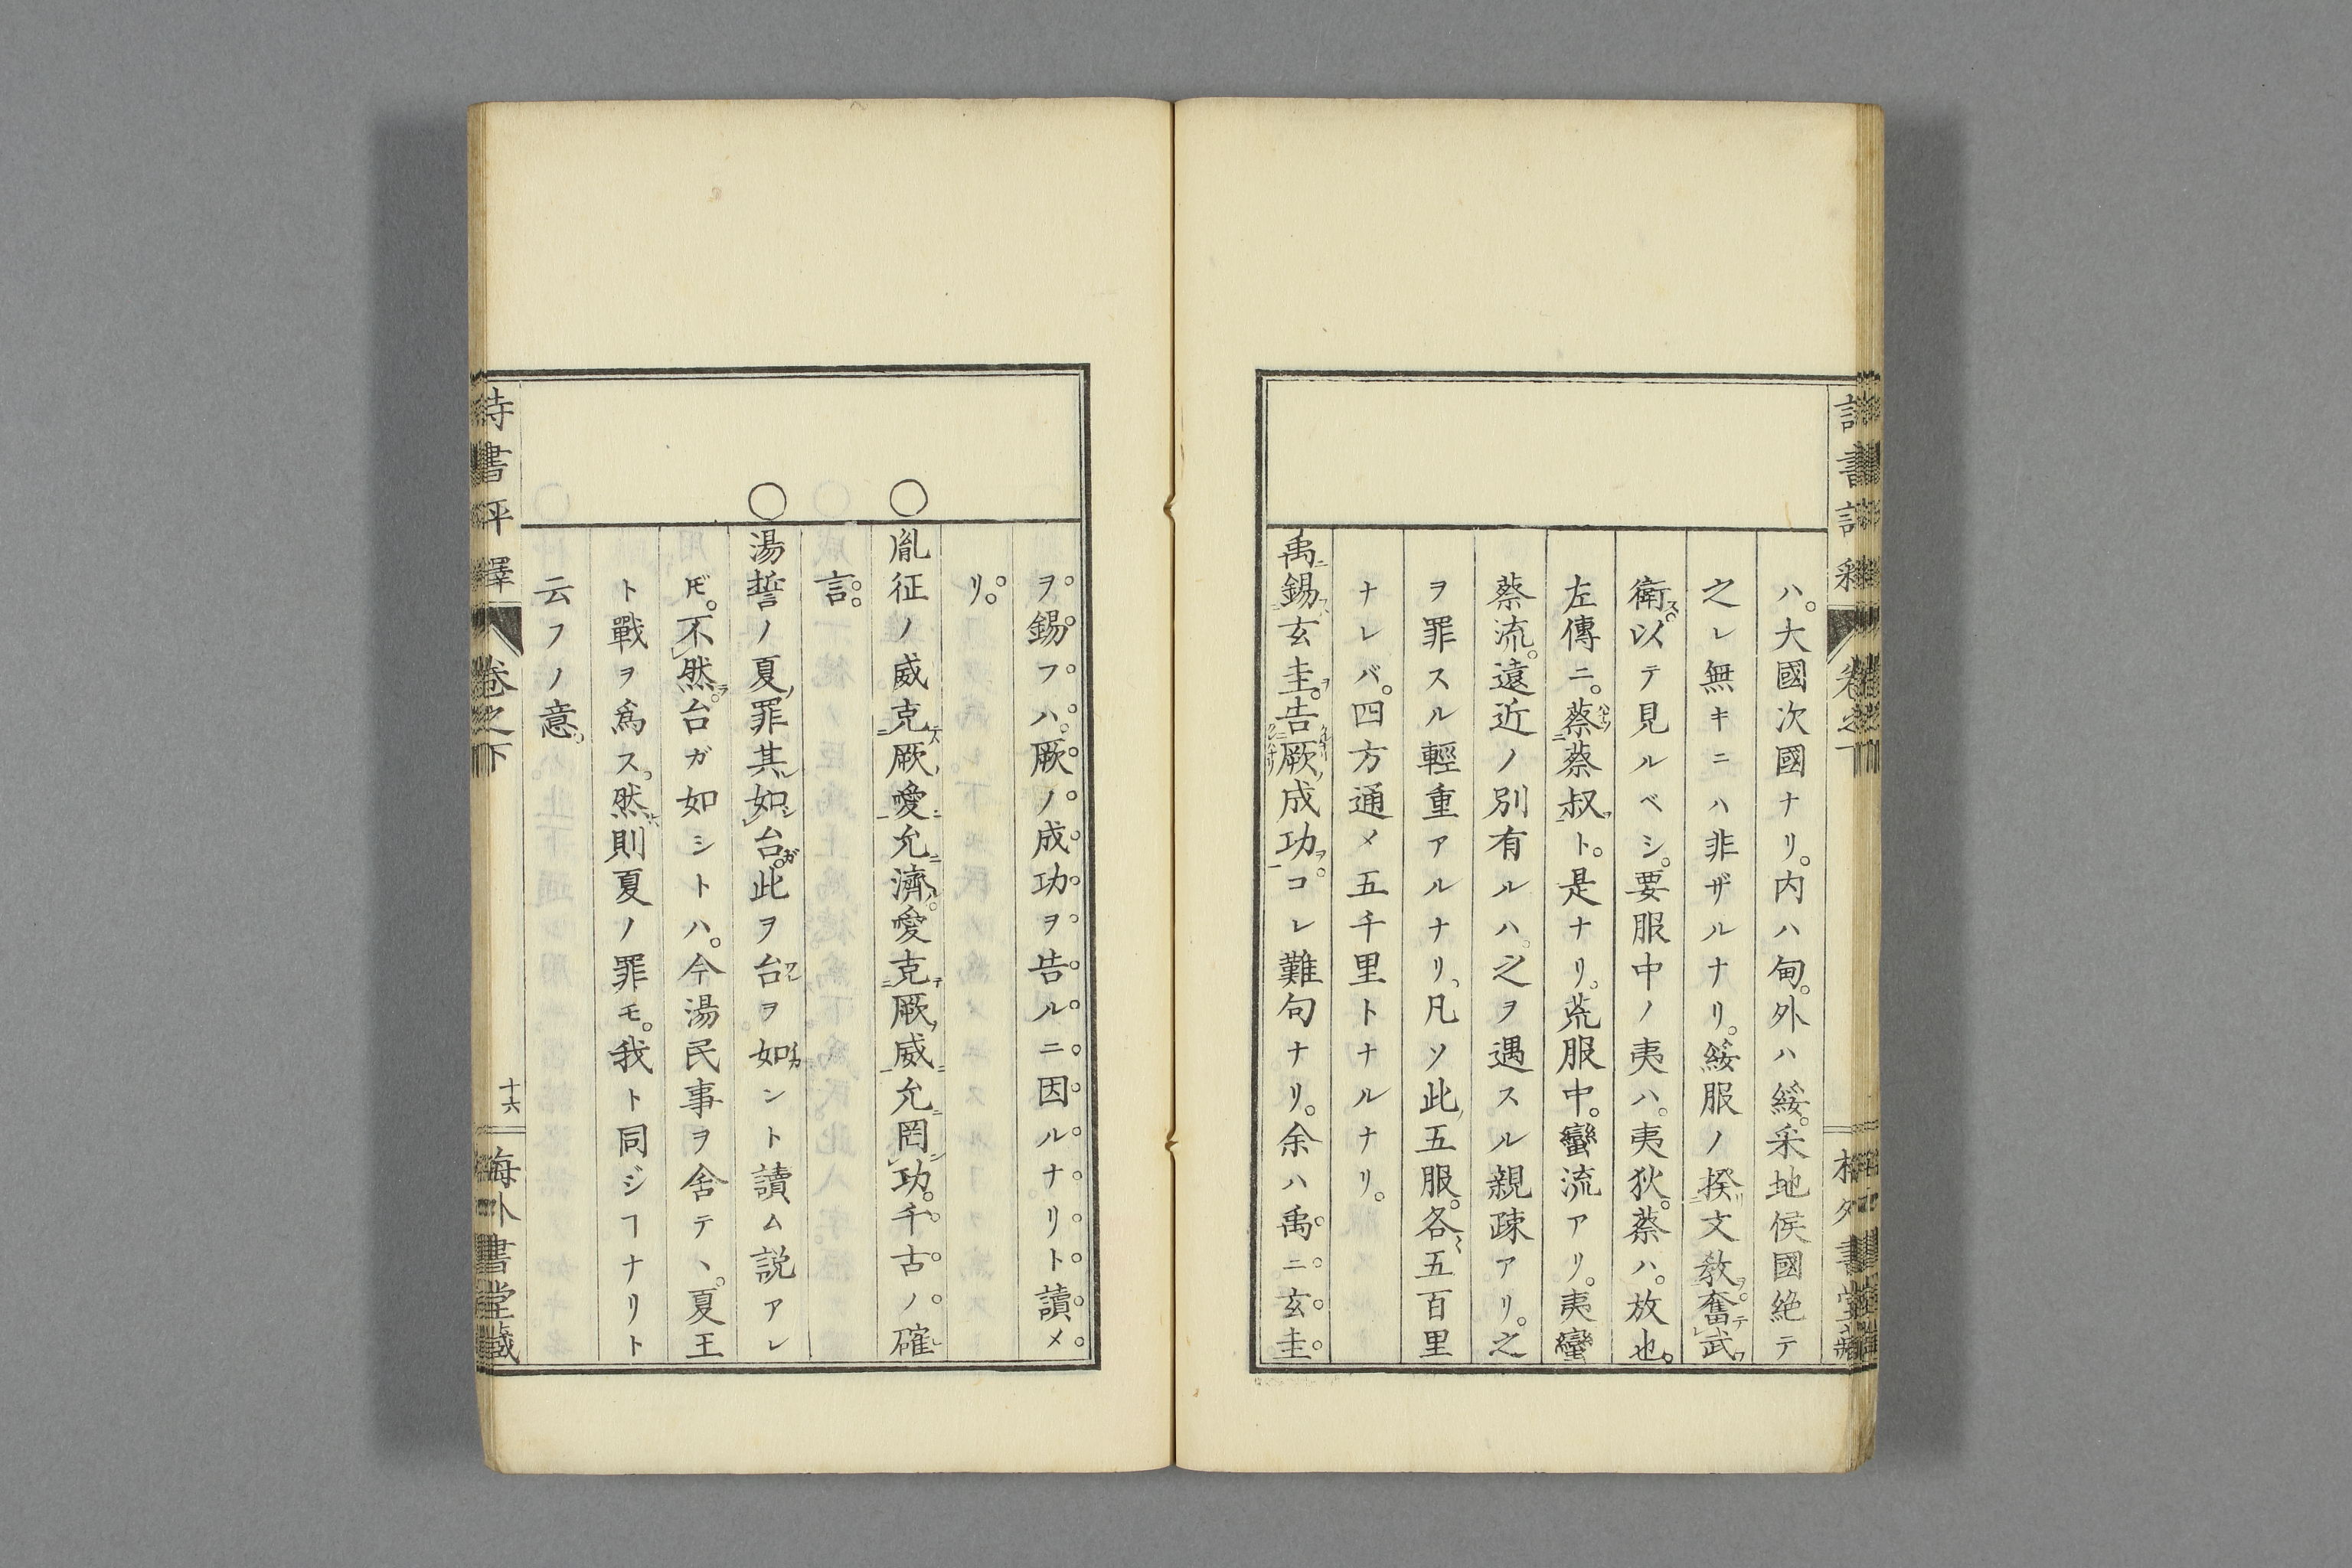 ハ。大國次國ナリ。内ハ甸。外ハ綏。采地侯國絶テ
之レ無キニハ非ザルナリ。綏服ノ揆文教奮武
衛以テ見ルベシ。要服中ノ夷ハ。夷狄。蔡ハ。放也。
左傳ニ。蔡蔡叔ト。是ナリ。荒服中。蠻流アリ。夷蠻
蔡流。遠近ノ別有ルハ。之ヲ遇スル親疎アリ。之
ヲ罪スル輕重アルナリ。凡ソ此五服。各五百里
ナレバ。四方通メ五千里トナルナリ。
禹錫玄圭。告厥成功。コレ難句ナリ。余ハ禹ニ玄圭
ヲ錫フハ。厥ノ成功ヲ告ルニ因ルナリト讀メ
リ。
○胤征ノ威克厥愛允濟。愛克厥威允罔功。千古ノ確
言。
○湯誓ノ夏罪其如台。此ヲ台ヲ如ントト讀ム説アレ
𪜈。不然。台ガ如シトハ。今湯民事ヲ舍テヽ。夏王
ト戰ヲ爲ス。然則夏ノ罪モ。我ト同ジヿナリト
云フノ意。
詩書評釋 卷之下 十六 海外書堂藏